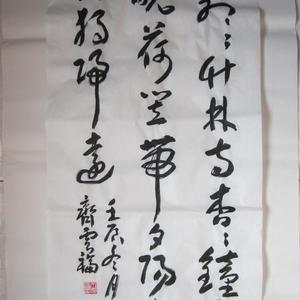 竹林寺杳〻鐘
晚荷笠帶夕陽
獨歸遠
壬辰冬月
齊雲福